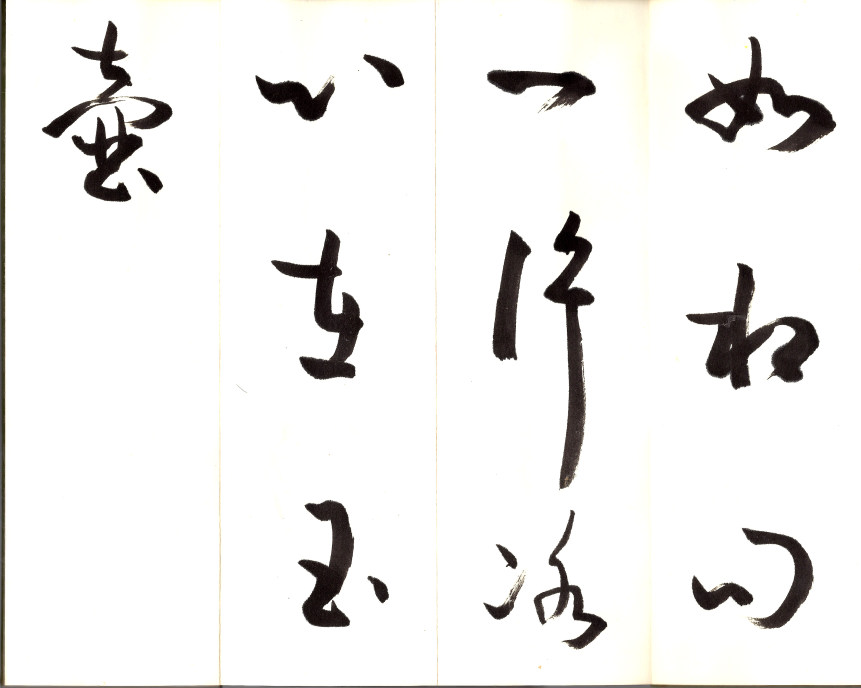 如相问
一片冰
心在玉
壶